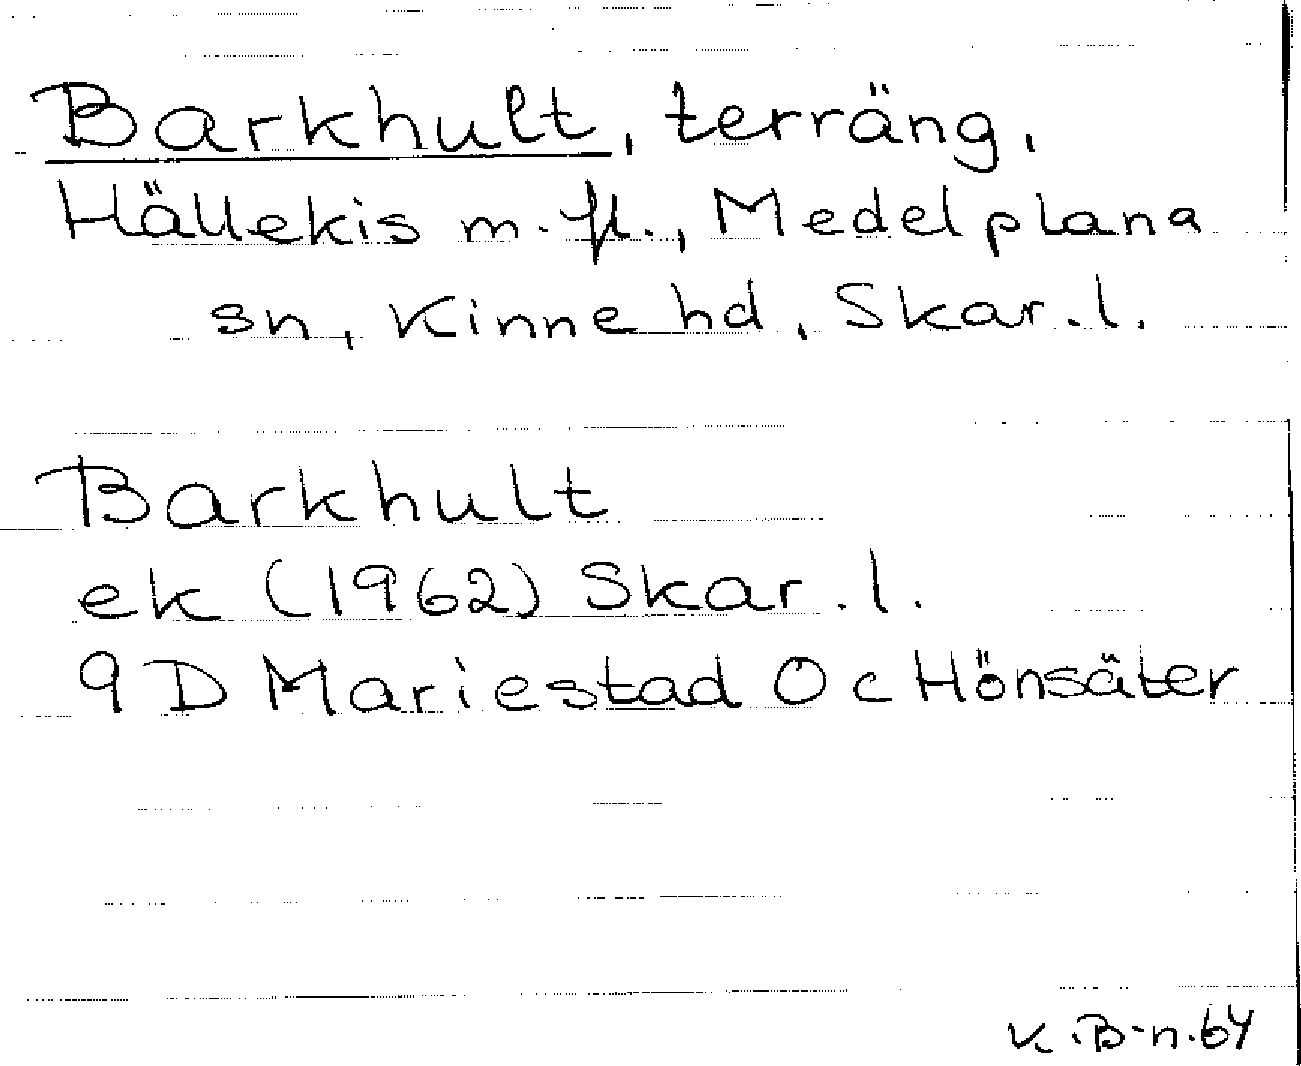 Barkhult, terräng,
Hällekis m.fl., Medelplana
sn, Kinne hd, Skar.l.
Barkhult
ek (1962) Skar.l.
9 D Mariestad 0 c Hönsäter
K.B-n.64